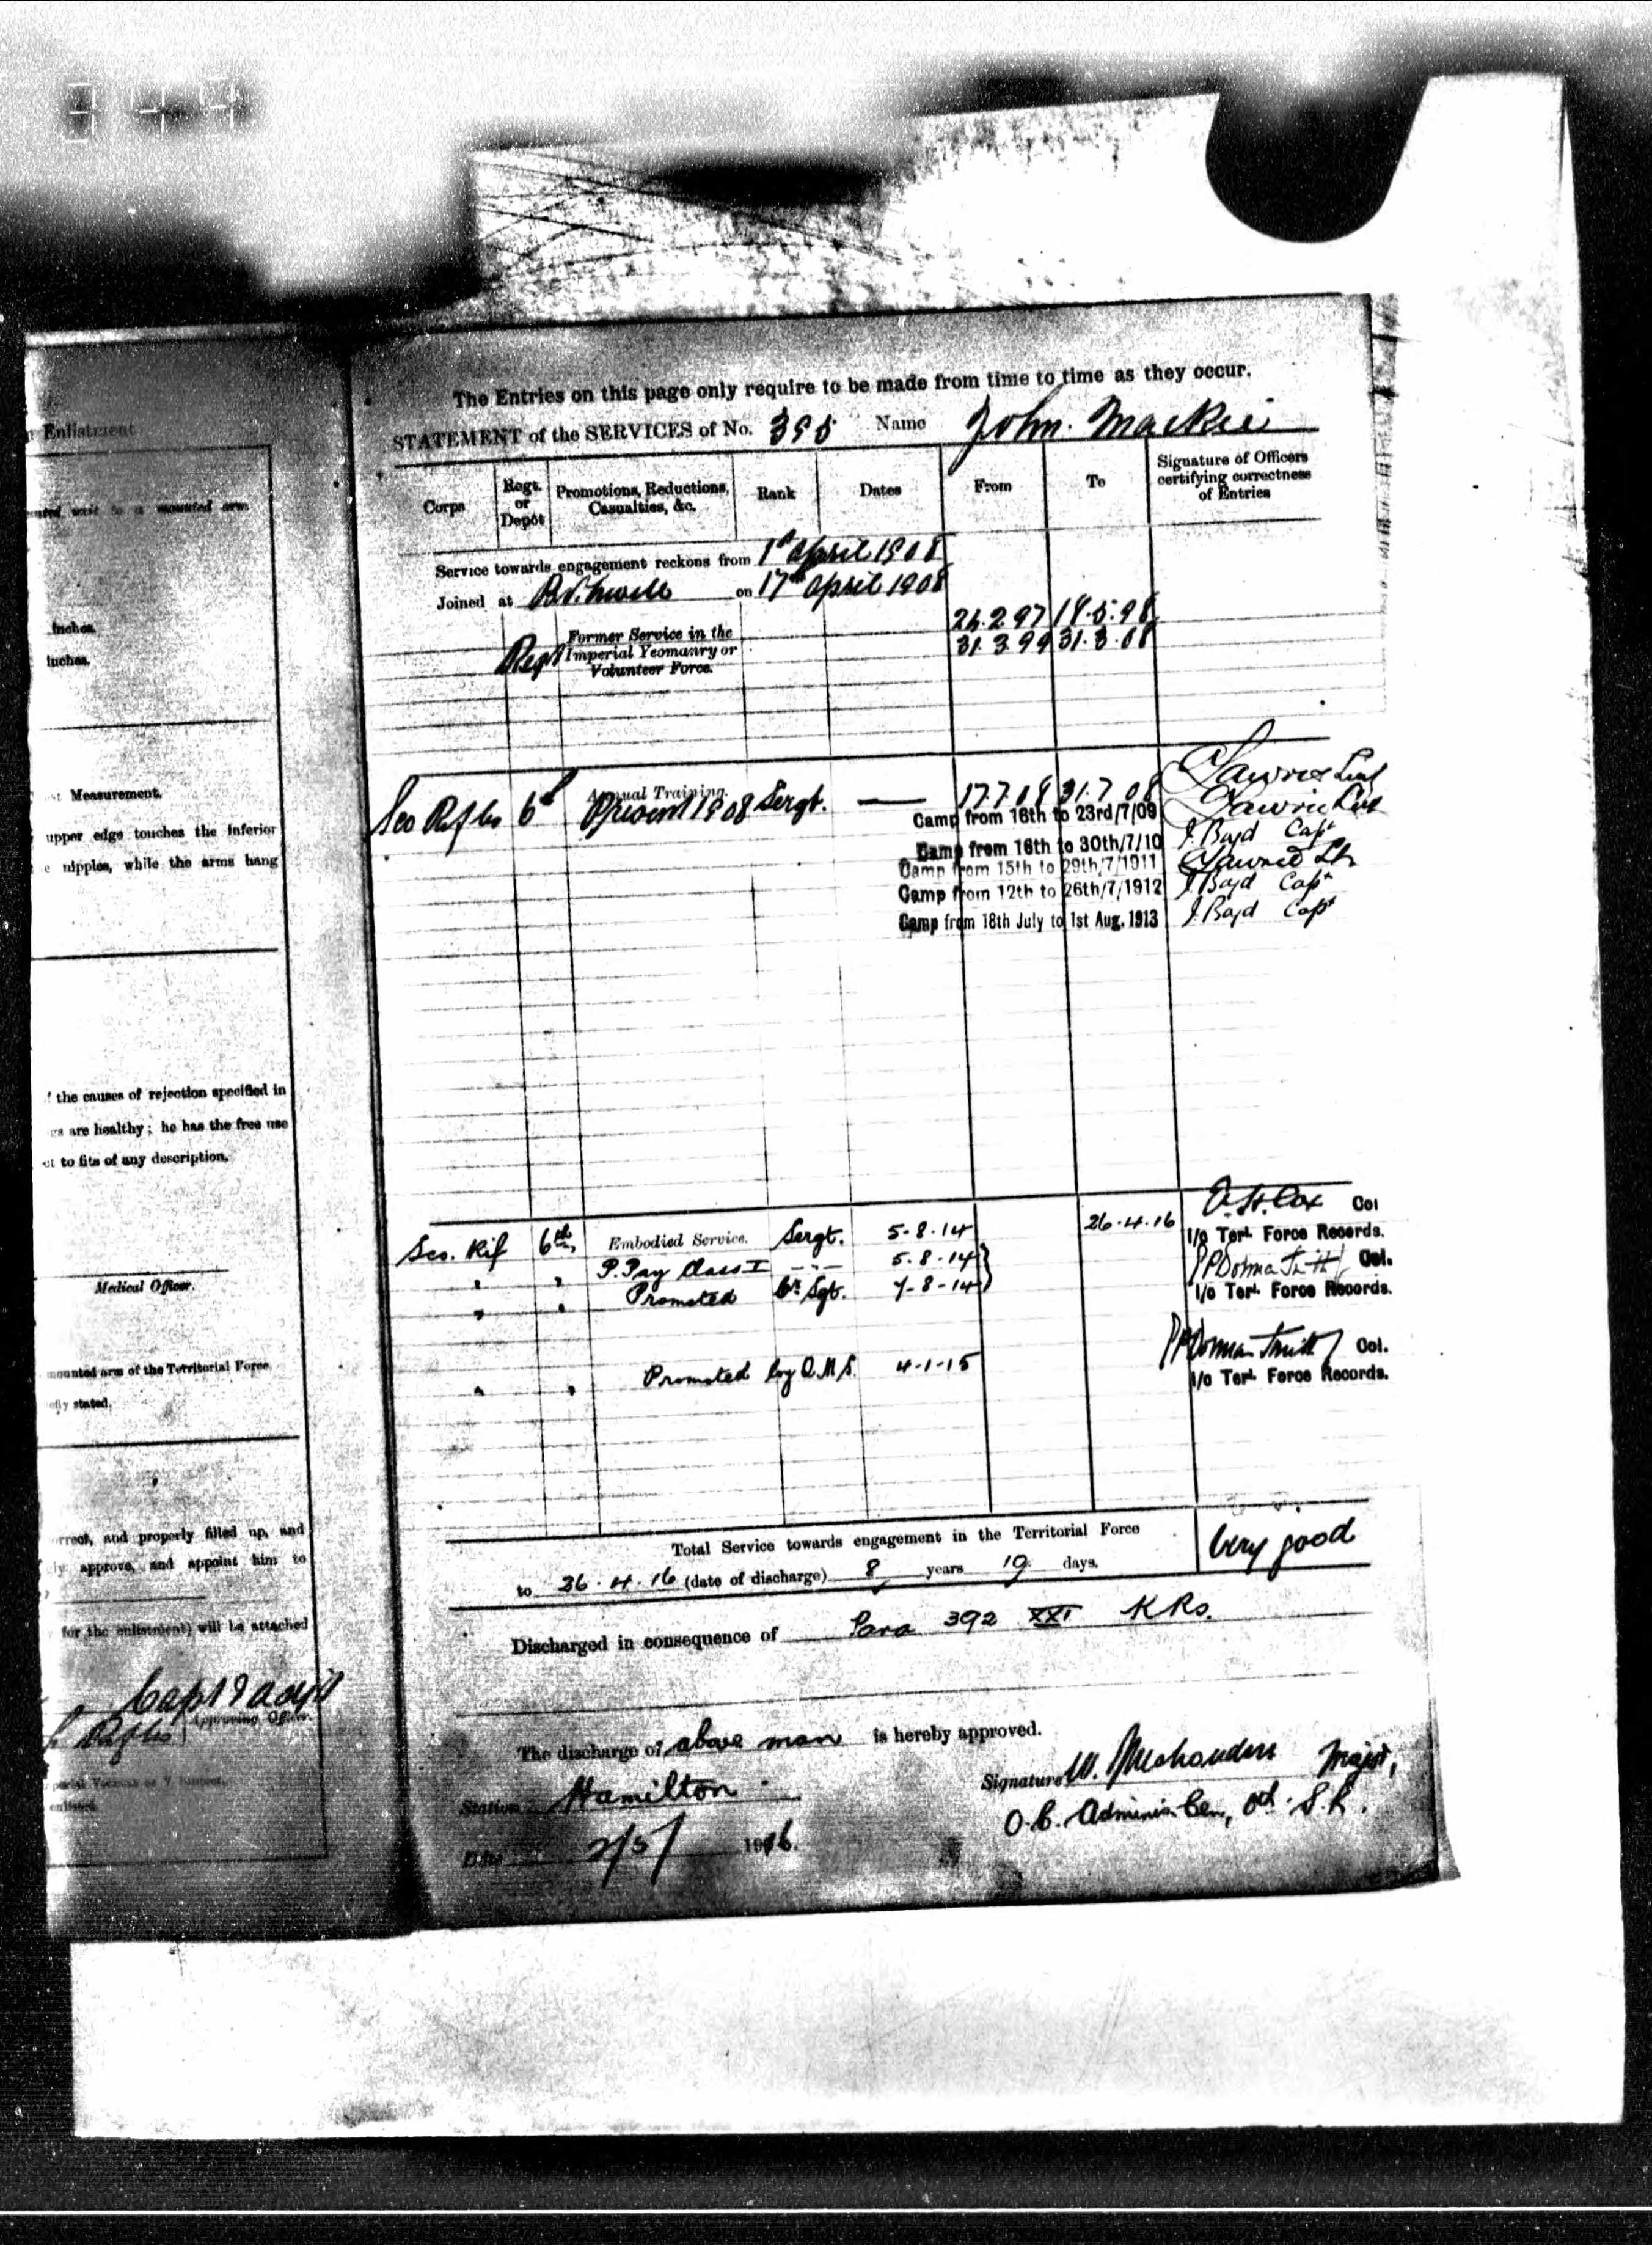 Enlistment
inches.
inches.
Measurement.
upper edge touches the inferior
e nipples, while the arms hang
f the causes of rejection specified in
are healthy; he has the free use
ct to fits of any description.
Medical Officer.
mounted arm of the Territorial Force
stated.
and properly filled up, and
approve, and appoint him to
for the enlistment) will be attached
Approving Officer.
The Entries on this page only require to be made from time to time as they occur.
STATEMENT of the SERVICES of No. 395 Name John Mackie
Corps Regt. or Depôt Promotions, Reductions, Casualties, &c. Rank Dates From To Signature of Officers certifying correctness of Entries
Service towards engagement reckons from 1st April 1908
Joined at on 17th April 1908
Former Service in the 24.2.97 19.5.98
Imperial Yeomanry or 31.3.99 31.3.08
Volunteer Force.
Annual Training.
Sco Rifles 6th Present 1908 Sergt. — 17 7 08 31.7 08
Camp from 16th to 23rd/7/09
Camp from 16th to 30th/7/10 J. Boyd Capt
Camp from 15th to 29th/7/1911
Camp from 12th to 26th/7/1912 J. Boyd Capt
Camp from 18th July to 1st Aug. 1913 J. Boyd Capt
Sco. Rif 6th Embodied Service. Sergt. 5-8-14 26.4.16 Cox Col
i/c Terl. Force Records.
" " P. Pay Class I — 5-8-14
Col.
" " Promoted Cr Sgt. 7-8-14 i/c Terl. Force Records.
" " Promoted Coy Q.M.S. 4-1-15 Col.
i/c Terl. Force Records.
Total Service towards engagement in the Territorial Force Very good
to 26.4.16 (date of discharge) 8 years 19 days.
Discharged in consequence of Para 392 XXI KRs.
The discharge of above man is hereby approved.
Station Hamilton Signature W. Major,
O.C. Adminis. Cen, 6th S.R.
Date 2/5/ 1916.